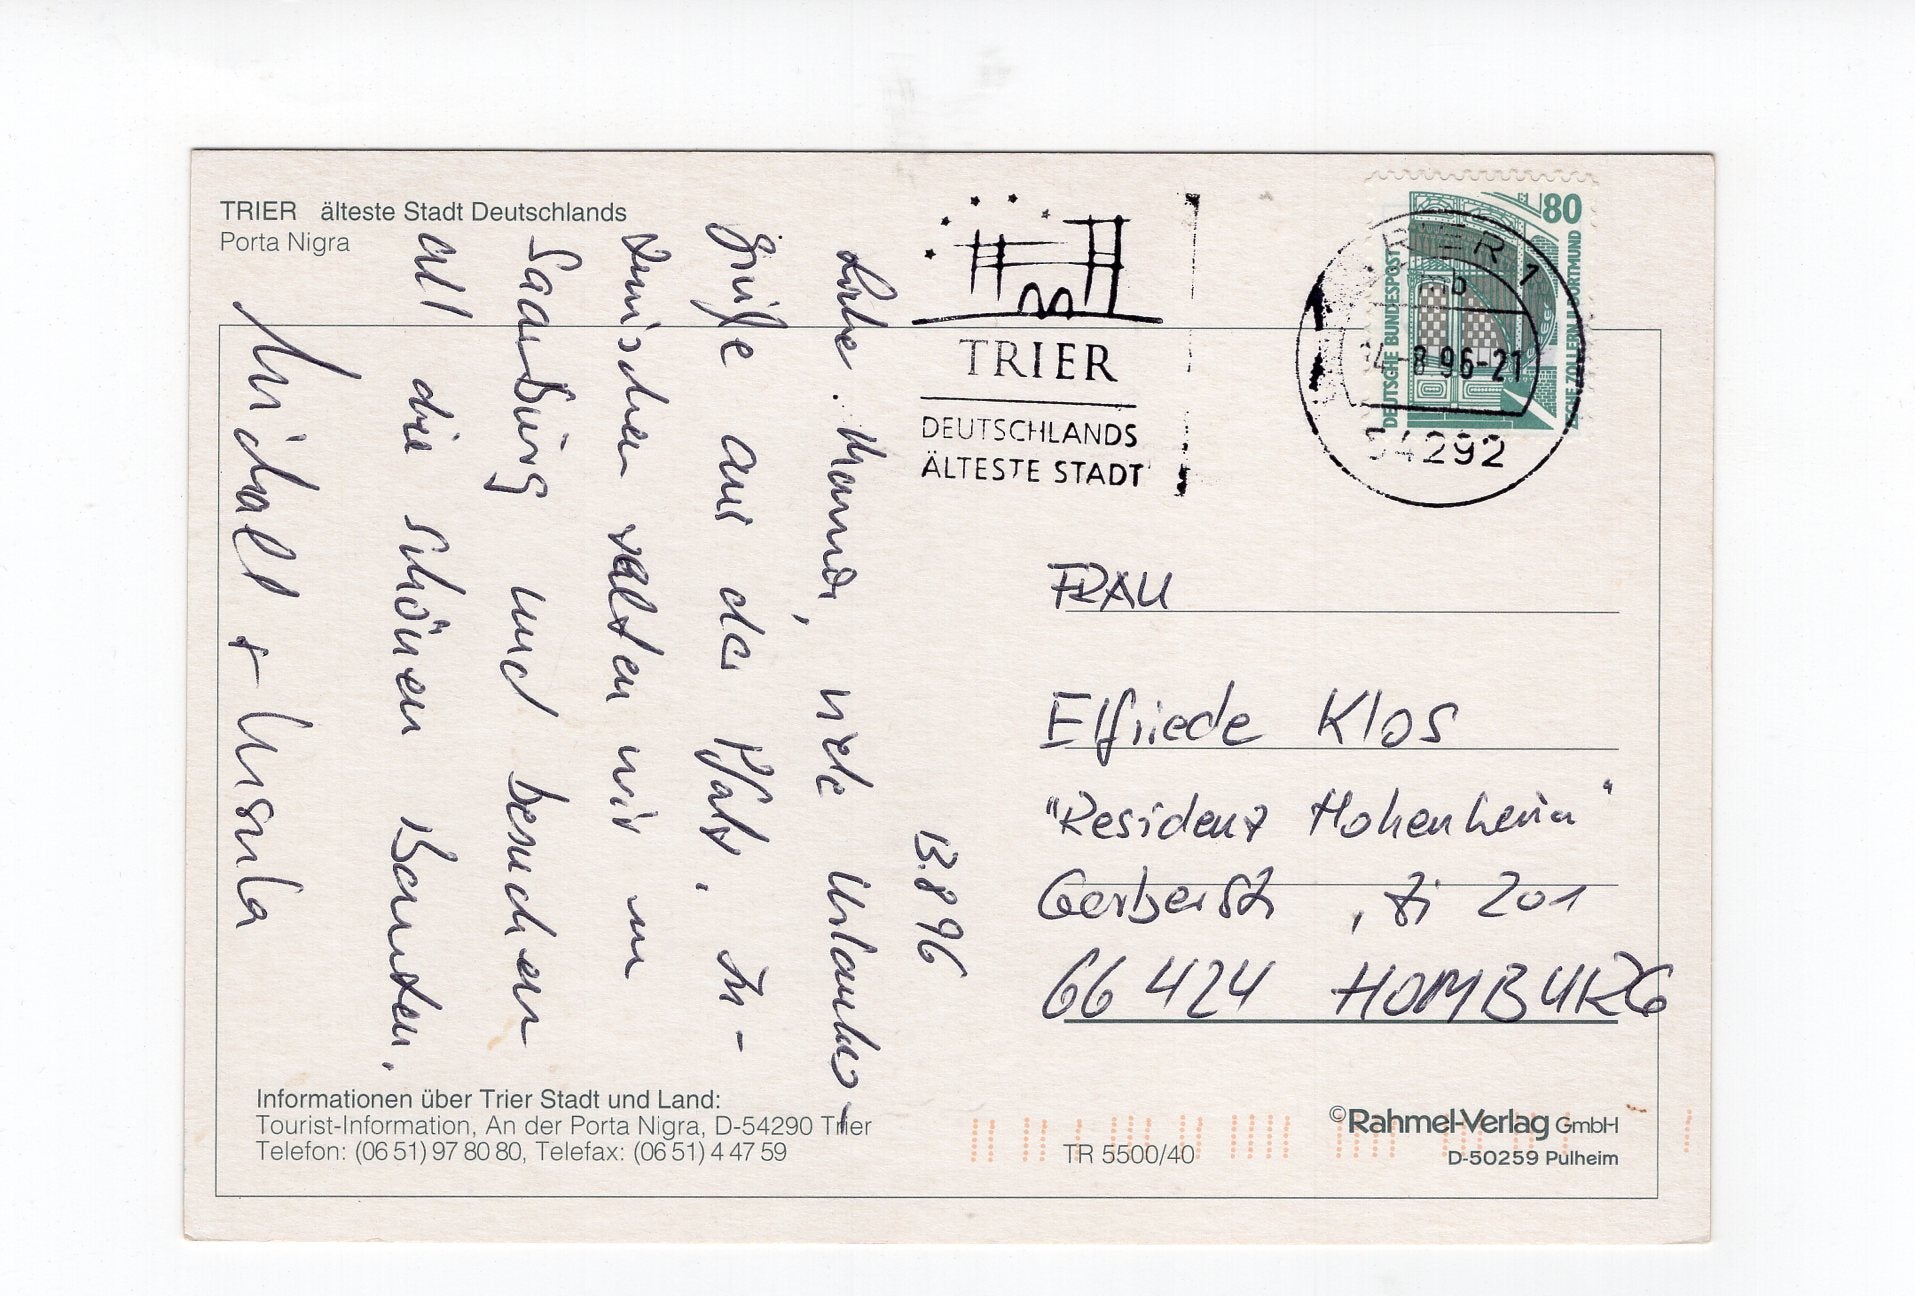 TRIER älteste Stadt Deutschlands
Porta Nigra
13.8.96
Liebe Mamma, viele Urlaubs-
grüße aus der Pfalz. In-
zwischen rasten wir in
Saarburg und besuchen
all die schönen Bauten.
Michael + Ursula
TRIER
DEUTSCHLANDS
ÄLTESTE STADT
80
DEUTSCHE BUNDESPOST
ZECHE ZOLLERN II DORTMUND
TRIER 1
mb
14-8.96-21
54292
FRAU
Elfriede Klos
"Residenz Hohenheim"
Gerberstr , Zi 201
66424 HOMBURG
Informationen über Trier Stadt und Land:
Tourist-Information, An der Porta Nigra, D-54290 Trier
Telefon: (06 51) 97 80 80, Telefax: (06 51) 4 47 59
TR 5500/40
©Rahmel-Verlag GmbH
D-50259 Pulheim